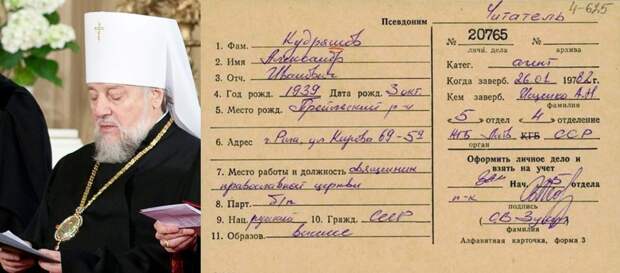 Псевдоним Читатель
4-625
1. Фам. Кудряшов
2. Имя Александр
3. Отч. Иванович
4. Год рожд. 1939 Дата рожд. 3 окт.
5. Место рожд. Прейльский р-н
6. Адрес г. Рига, ул Кирова 69-59
7. Место работы и должность священник
православной церкви
8. Парт. б/п
9. Нац. русский 10. Гражд. СССР
11. Образов. высшее
№ 20765
личн. дела архива
Катег. агент
Когда заверб. 26.01 1982 г.
Кем заверб. Ищенко А.Н
фамилия
5 отдел 4 отделение
КГБ Латв КГБ ССР
орган
Оформить личное дело и
взять на учет
Нач. 5 отдела
п-к
подпись
фамилия
Алфавитная карточка, форма 3